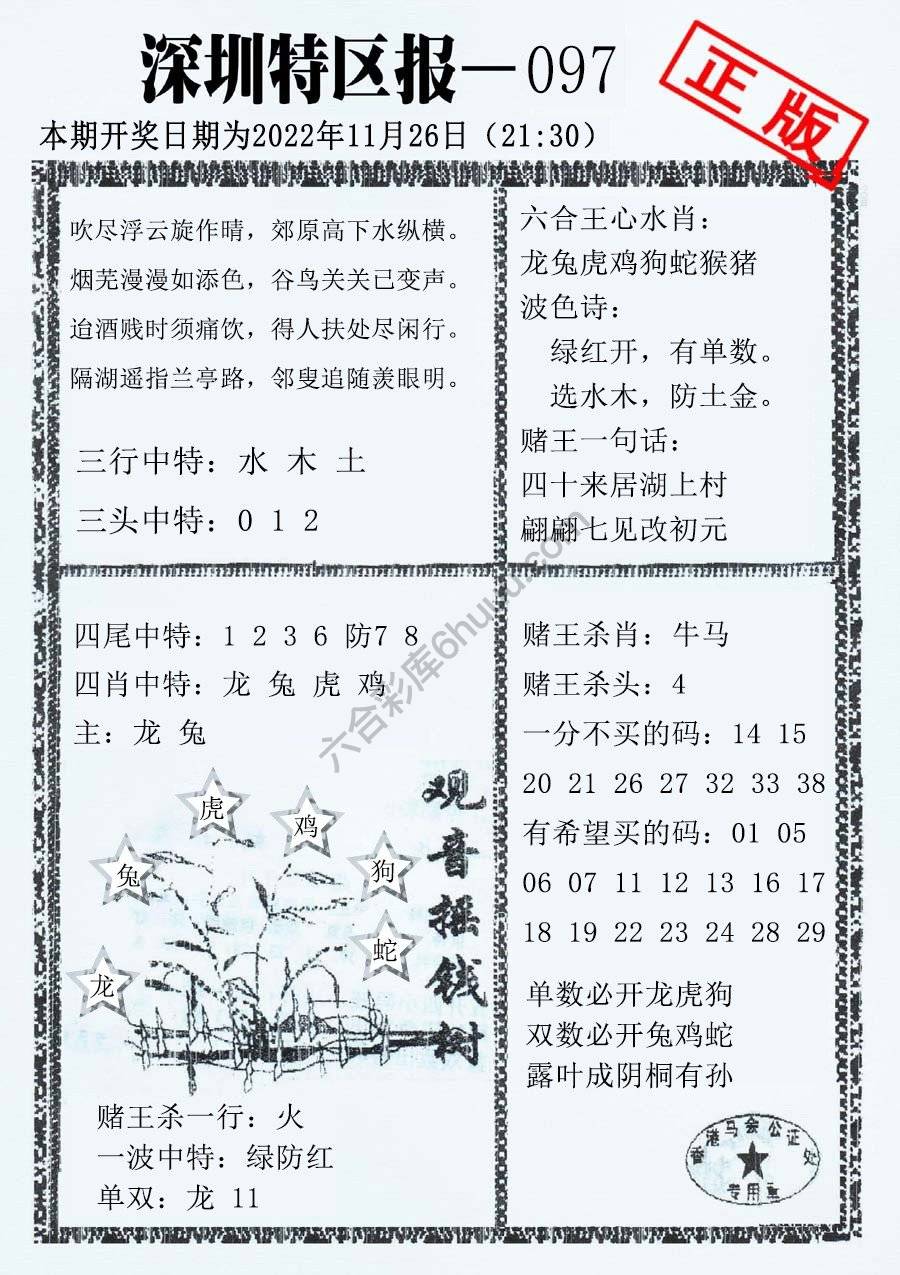 深圳特区报—097
正版
本期开奖日期为2022年11月26日（21:30）
吹尽浮云旋作晴，郊原高下水纵横。
烟芜漫漫如添色，谷鸟关关已变声。
迨酒贱时须痛饮，得人扶处尽闲行。
隔湖遥指兰亭路，邻叟追随羡眼明。
三行中特：水 木 土
三头中特：0 1 2
六合王心水肖：
龙兔虎鸡狗蛇猴猪
波色诗：
绿红开，有单数。
选水木，防土金。
赌王一句话：
四十来居湖上村
翩翩七见改初元
四尾中特：1 2 3 6 防7 8
四肖中特：龙 兔 虎 鸡
主：龙 兔
虎
鸡
兔
狗
蛇
龙
观音摇钱树
赌王杀一行：火
一波中特：绿防红
单双：龙 11
赌王杀肖：牛马
赌王杀头：4
一分不买的码：14 15
20 21 26 27 32 33 38
有希望买的码：01 05
06 07 11 12 13 16 17
18 19 22 23 24 28 29
单数必开龙虎狗
双数必开兔鸡蛇
露叶成阴桐有孙
香港马会公证处
专用章
六合彩库6huuu.com